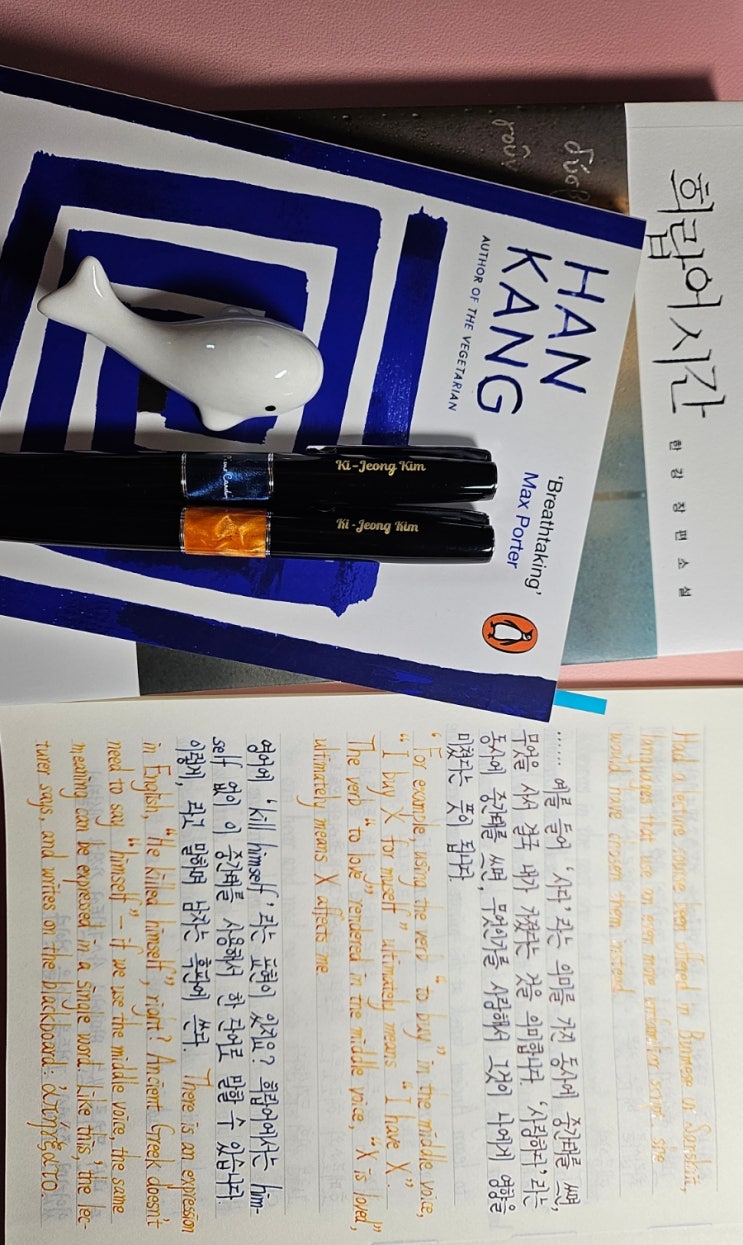 희랍어 시간
한 강 장 편 소 설
HAN
KANG
AUTHOR OF THE VEGETARIAN
'Breathtaking'
Max Porter
Ki-Jeong Kim
Ki-Jeong Kim
Had a lecture course been offered in Burmese or Sanskrit,
languages that use an even more unfamiliar script, she
would have chosen them instead.
...... 예를 들어 '사다'라는 의미를 가진 동사에 중간태를 쓰면,
무엇을 사서 결국 내가 가졌다는 것을 의미합니다. '사랑하다'라는
동사에 중간태를 쓰면, 무엇인가를 사랑해서 그것이 나에게 영향을
미쳤다는 뜻이 됩니다.
"For example, using the verb "to buy" in the middle voice,
"I buy X for myself" ultimately means "I have X".
The verb "to love" rendered in the middle voice, "X is loved",
ultimately means X affects me.
영어에 'kill himself'라는 표현이 있지요? 희랍어에서는 him-
self 없이 이 중간태를 사용해서 한 단어로 말할 수 있습니다.
이렇게, 라고 말하며 남자는 흑판에 쓴다. There is an expression
in English, "He killed himself", right? Ancient Greek doesn't
need to say "himself" – if we use the middle voice, the same
meaning can be expressed in a single word. Like this, the lec-
turer says, and writes on the blackboard: 'ἀπήγξατο.